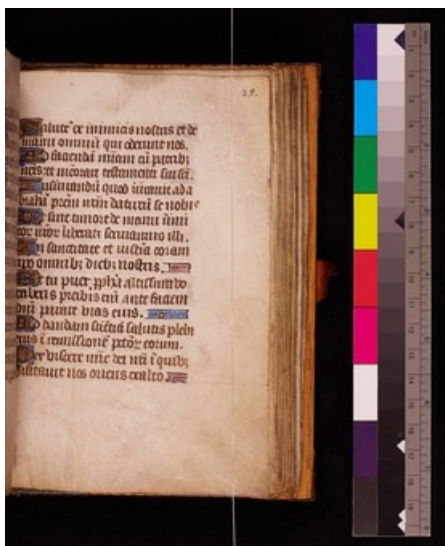 29.
Salutē ex inimicis nostris et de
manu omniū qui oderunt nos.
Ad faciendā miām cū patribꝫ
nris: et memorari testamenti sui sct̄i.
Iusiurandū quod iurauit ad a
brahā prēm nrm daturū se nobis
Ut sine timore de manu inimi
corum nrōr liberati seruiamus illi.
In sanctitate et iusticia coram
ipo omnibꝫ diebꝫ nostris.
Et tu puer ppha altissimi vo
caberis preibis enī ante faciem
dn̄i parare vias eius.
Ad dandam sciētiā salutis plebi
eius ī remissionē pctōr eorum.
Per viscera mie dei nrī ī quibꝫ
uisitauit nos oriens ex alto